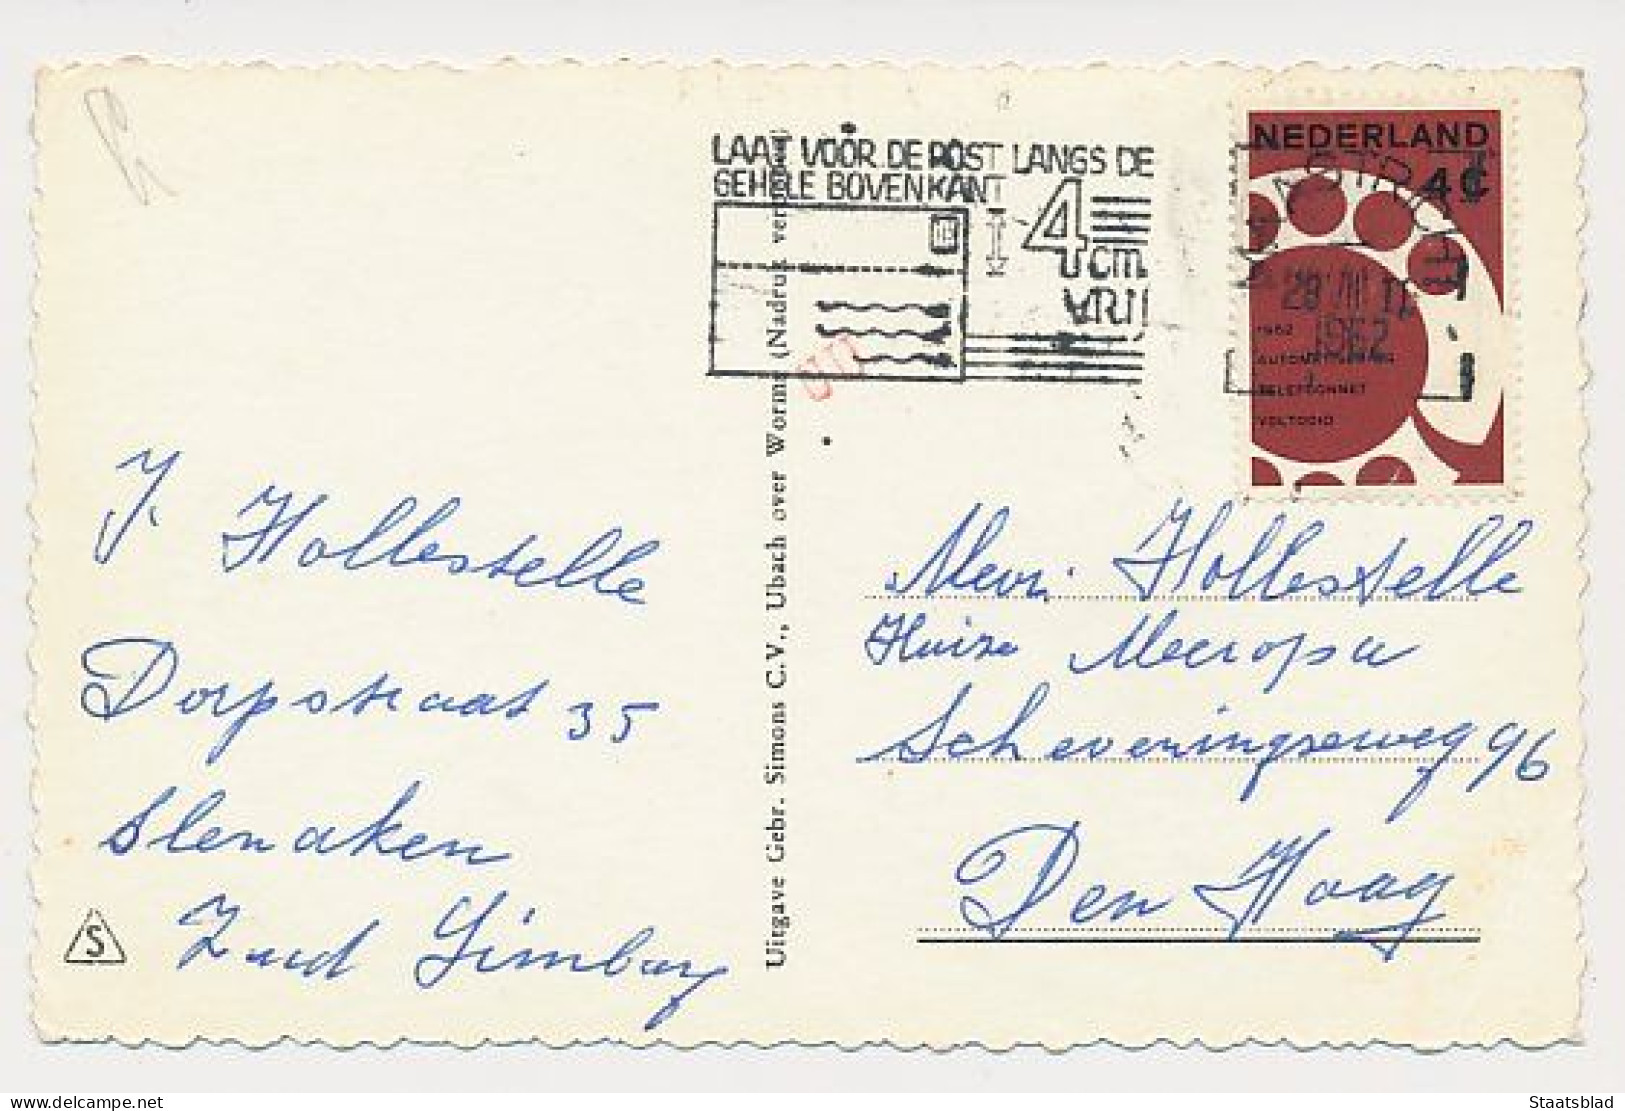 LAAT VOOR DE POST LANGS DE
GEHELE BOVENKANT
4 cm
VRIJ
NEDERLAND
4c
MAASTRICHT
28 VIII
1962
1962
AUTOMATISERING
TELEFOONNET
VOLTOOID
J. Hollestelle
Dorpstraat 35
Slenaken
Zuid Limburg
S
Uitgave Gebr. Simons C.V., Ubach over Worms (Nadruk verboden)
Mevr. Hollestelle
Huize Meeropa
Scheveningseweg 96
Den Haag
https://www.delcampe.net
Staatsblad